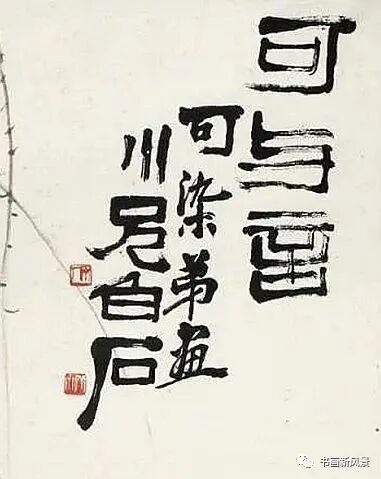 可与言
可染弟画
小兄白石
书画新风景